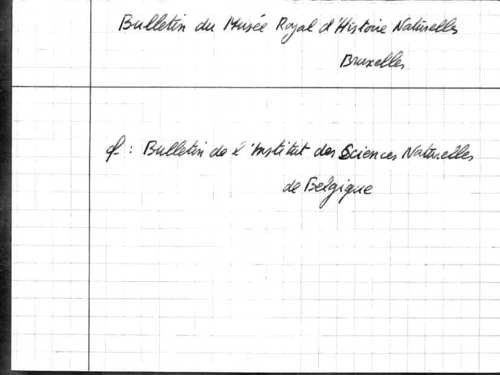 Bulletin du Musée Royal d'Histoire Naturelles
Bruxelles
cf. : Bulletin de l'Institut des Sciences Naturelles
de Belgique